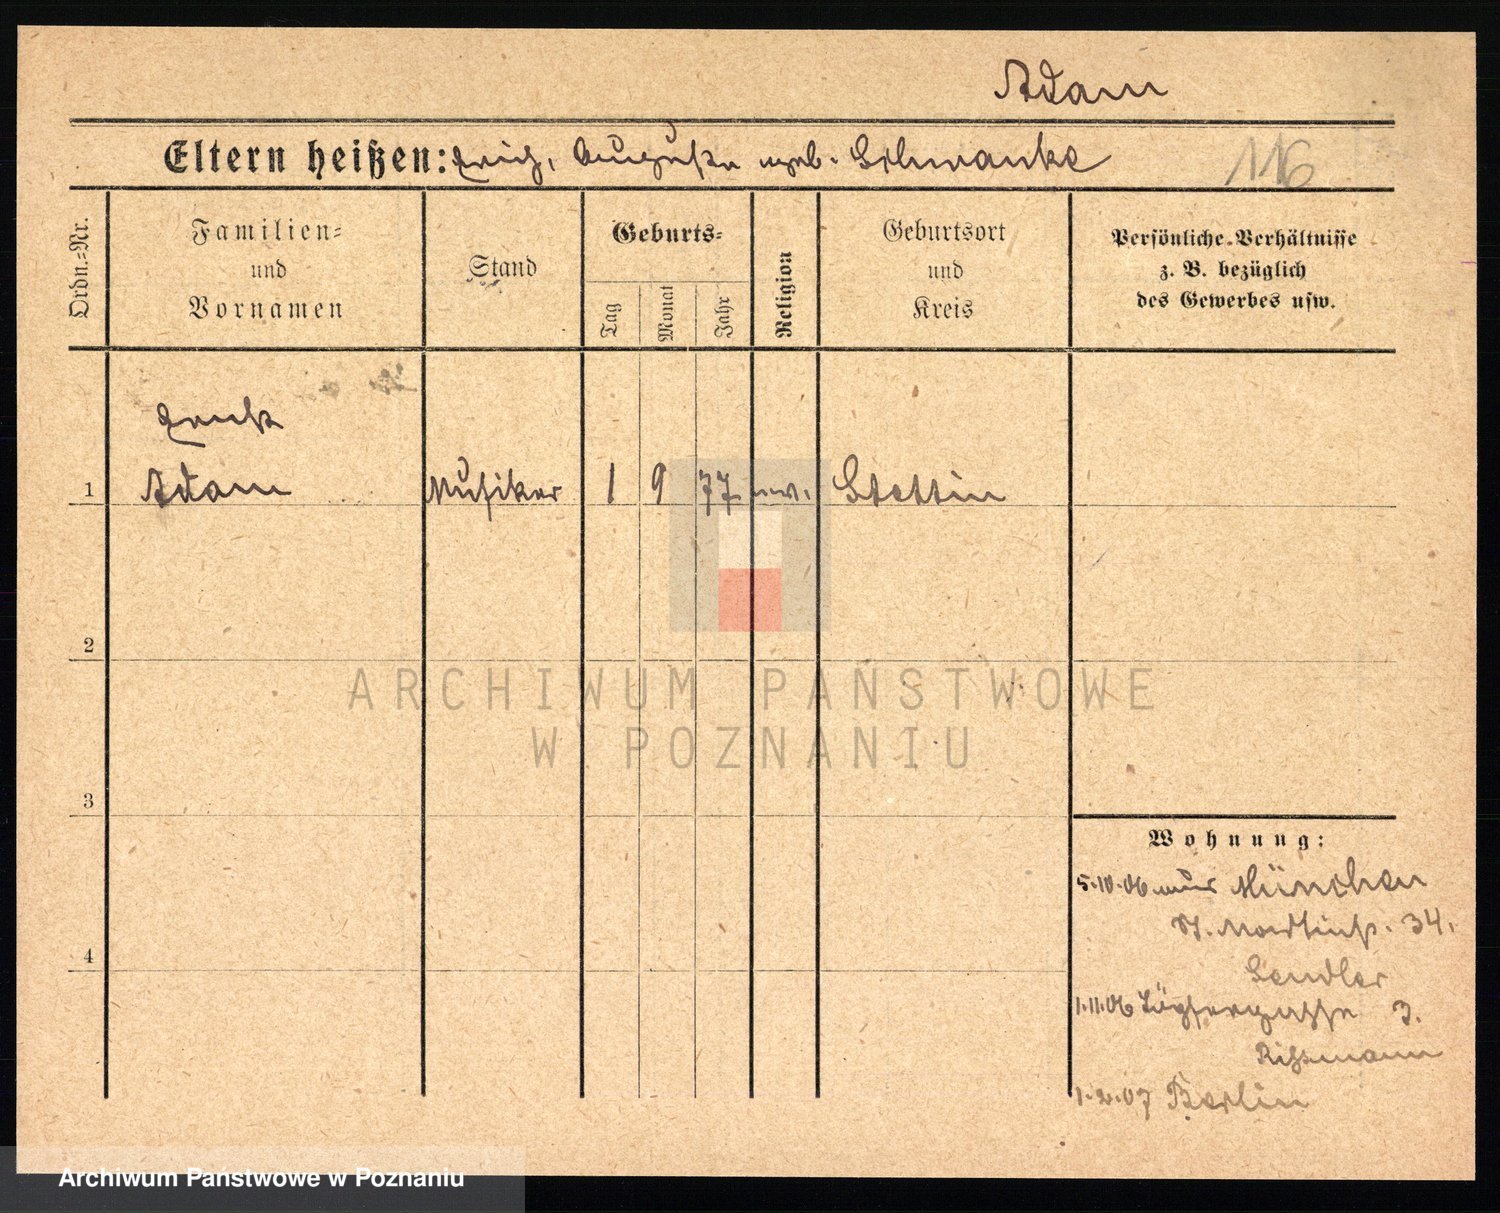 Adam
Eltern heißen: Erich, Auguste geb. Schwanke
116
Ordn.=Nr.
Familien=
und
Vornamen
Stand
Geburts=
Tag
Monat
Jahr
Religion
Geburtsort
und
Kreis
Persönliche Verhältnisse
z. B. bezüglich
des Gewerbes usw.
1
Adam
Musiker
1
9
77.
ev.
Stettin
2
3
4
Wohnung:
5.10.06 München
St. 34.
Sendler
1.11.06 Töpfergasse 3.
Rissmann
1.2.07 Berlin
ARCHIWUM PAŃSTWOWE
W POZNANIU
Archiwum Państwowe w Poznaniu